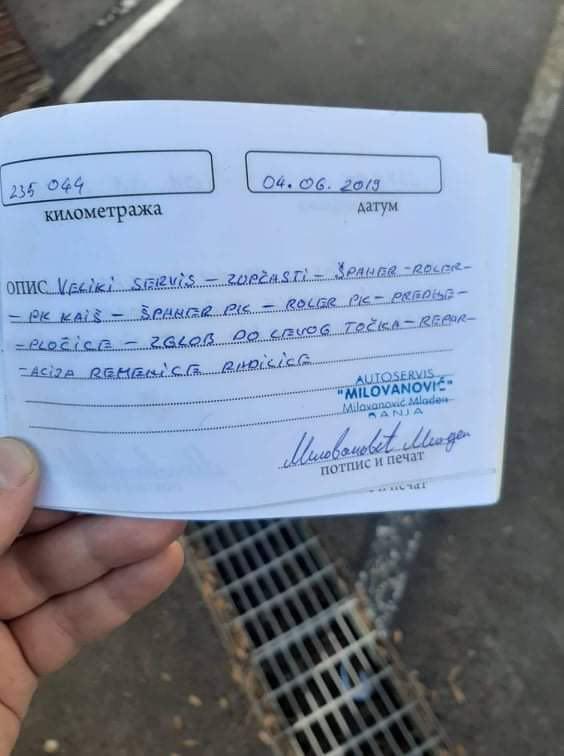 235 044
04.06.2019
километража
датум
ОПИС VELIKI SERVIS - ZUPČASTI - ŠPANER -ROLER-
- PK KAIŠ - ŠPANER PK - ROLER PK - PREDNJE-
- PLOČICE - ZGLOB DO LEVOG TOČKA - REPAR-
- ACIJA REMENICE RADILICE
AUTOSERVIS
"MILOVANOVIĆ"
Milovanović Mladen
BANJA
Миловановић Младен
потпис и печат
и печат